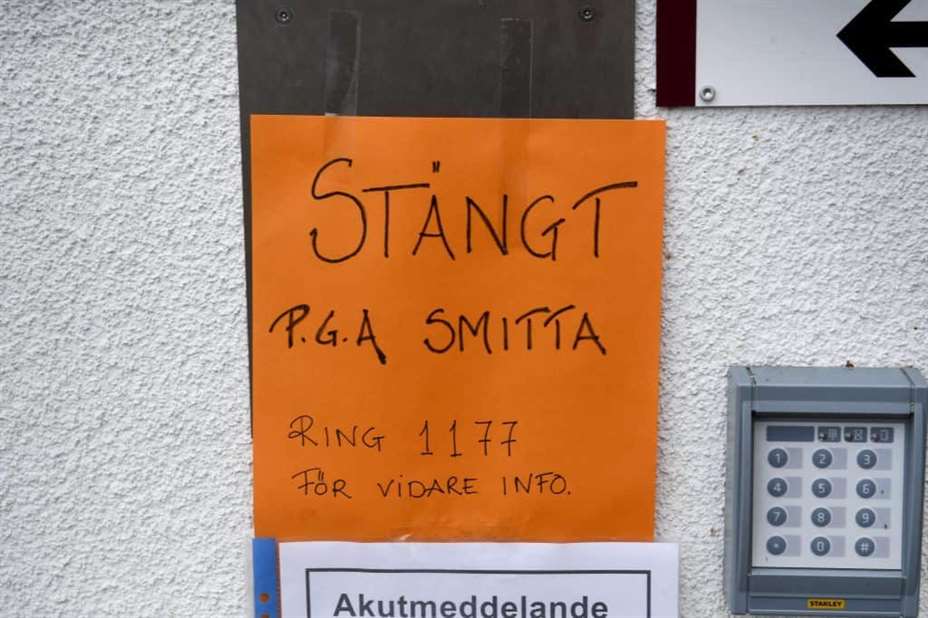 STÄNGT
P.G.A SMITTA
RING 1177
FÖR VIDARE INFO.
Akutmeddelande
1 2 3
4 5 6
7 8 9
* 0 #
STANLEY